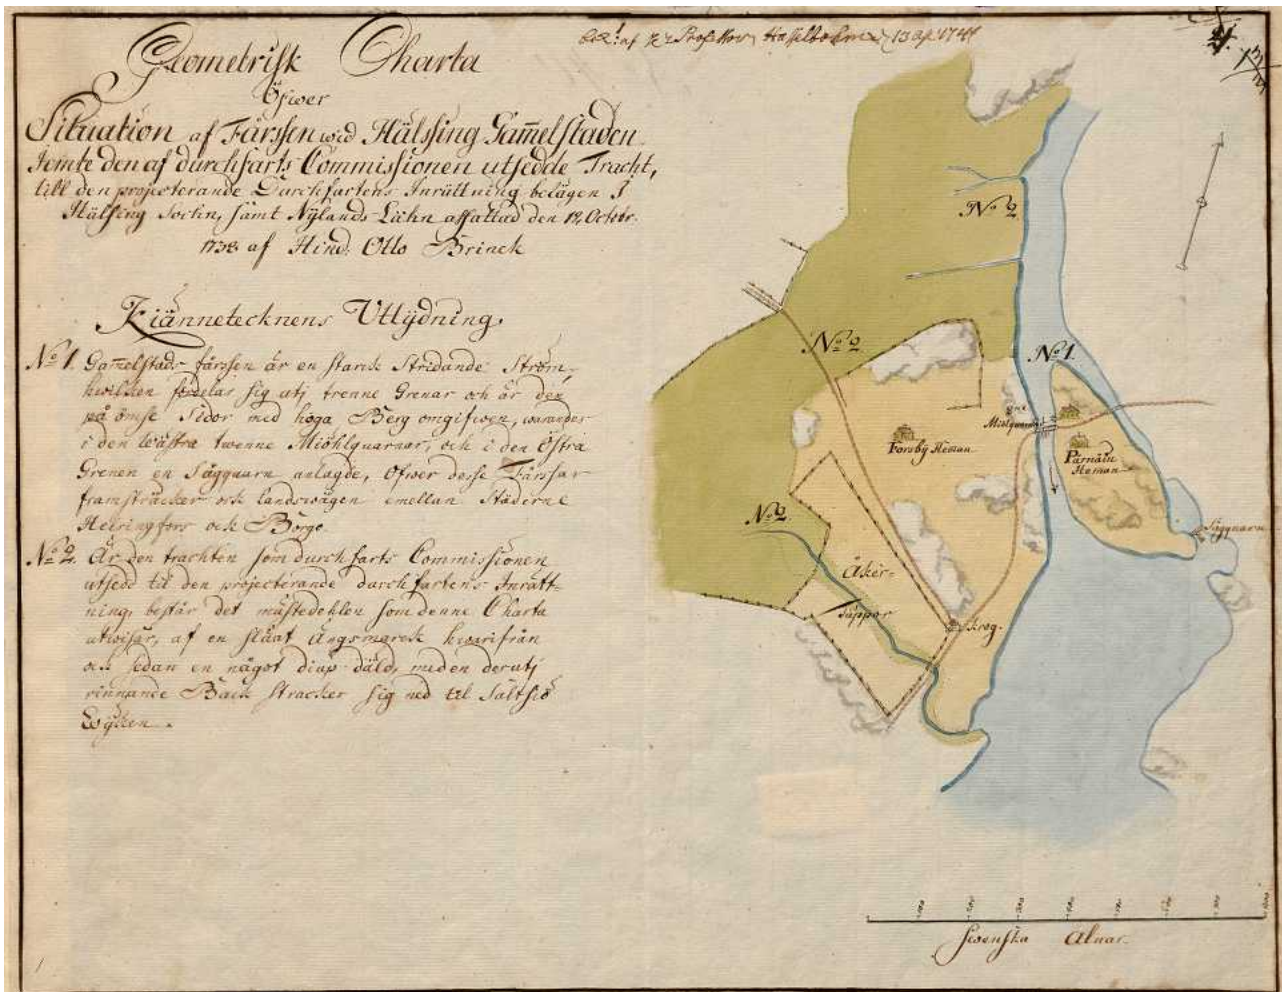 Geometrisk Charta
Öfwer
Situation af Fårssen wid Hälsing Gam̄elstaden
Jemte den af durchfarts Commissionen utsedde Tracht,
till den projecterande Durchfartens Inrättning belägen I
Hälsing Sochn, samt Nylands Lähn affattad den 12 Octobr.
1738 af Hind. Otto Brinck
af Professor Hasselbohm 13 ap. 1744
Kiännetecknens Uttÿdning.
No 1. Gam̄elstads fårssen är en starck Stridande Ström,
hwilken fördelar sig utj trenne Grenar och är den
på ömse Sidor med höga Berg omgifwen, warandes
i den Wästra twenne Miöhlquarnar, och i den Östra
Grenen en Sågquarn anlagde, Öfwer desse Fårssar
framsträcker ock landswägen emellan Städerne
Helsingfors och Börgo
No 2. Är den trachten som durchfarts Commissionen
utsedt til den projecterande durchfartens Inrätt-
ning, består det mästedehlen som denne Charta
utwisar, af en slät Ängsmarck hwarifrån
och sedan en något diup däld, med en derutj
rinnande Bäck sträcker sig ned til Saltsiö
Wÿken.
No 2
No 2
No 1.
Miölquarnar
Forsbÿ Heman
Pärnäln
Heman
No 2
Sågquarn
Åker-
Täppor
Krog.
Swenska Alnar.